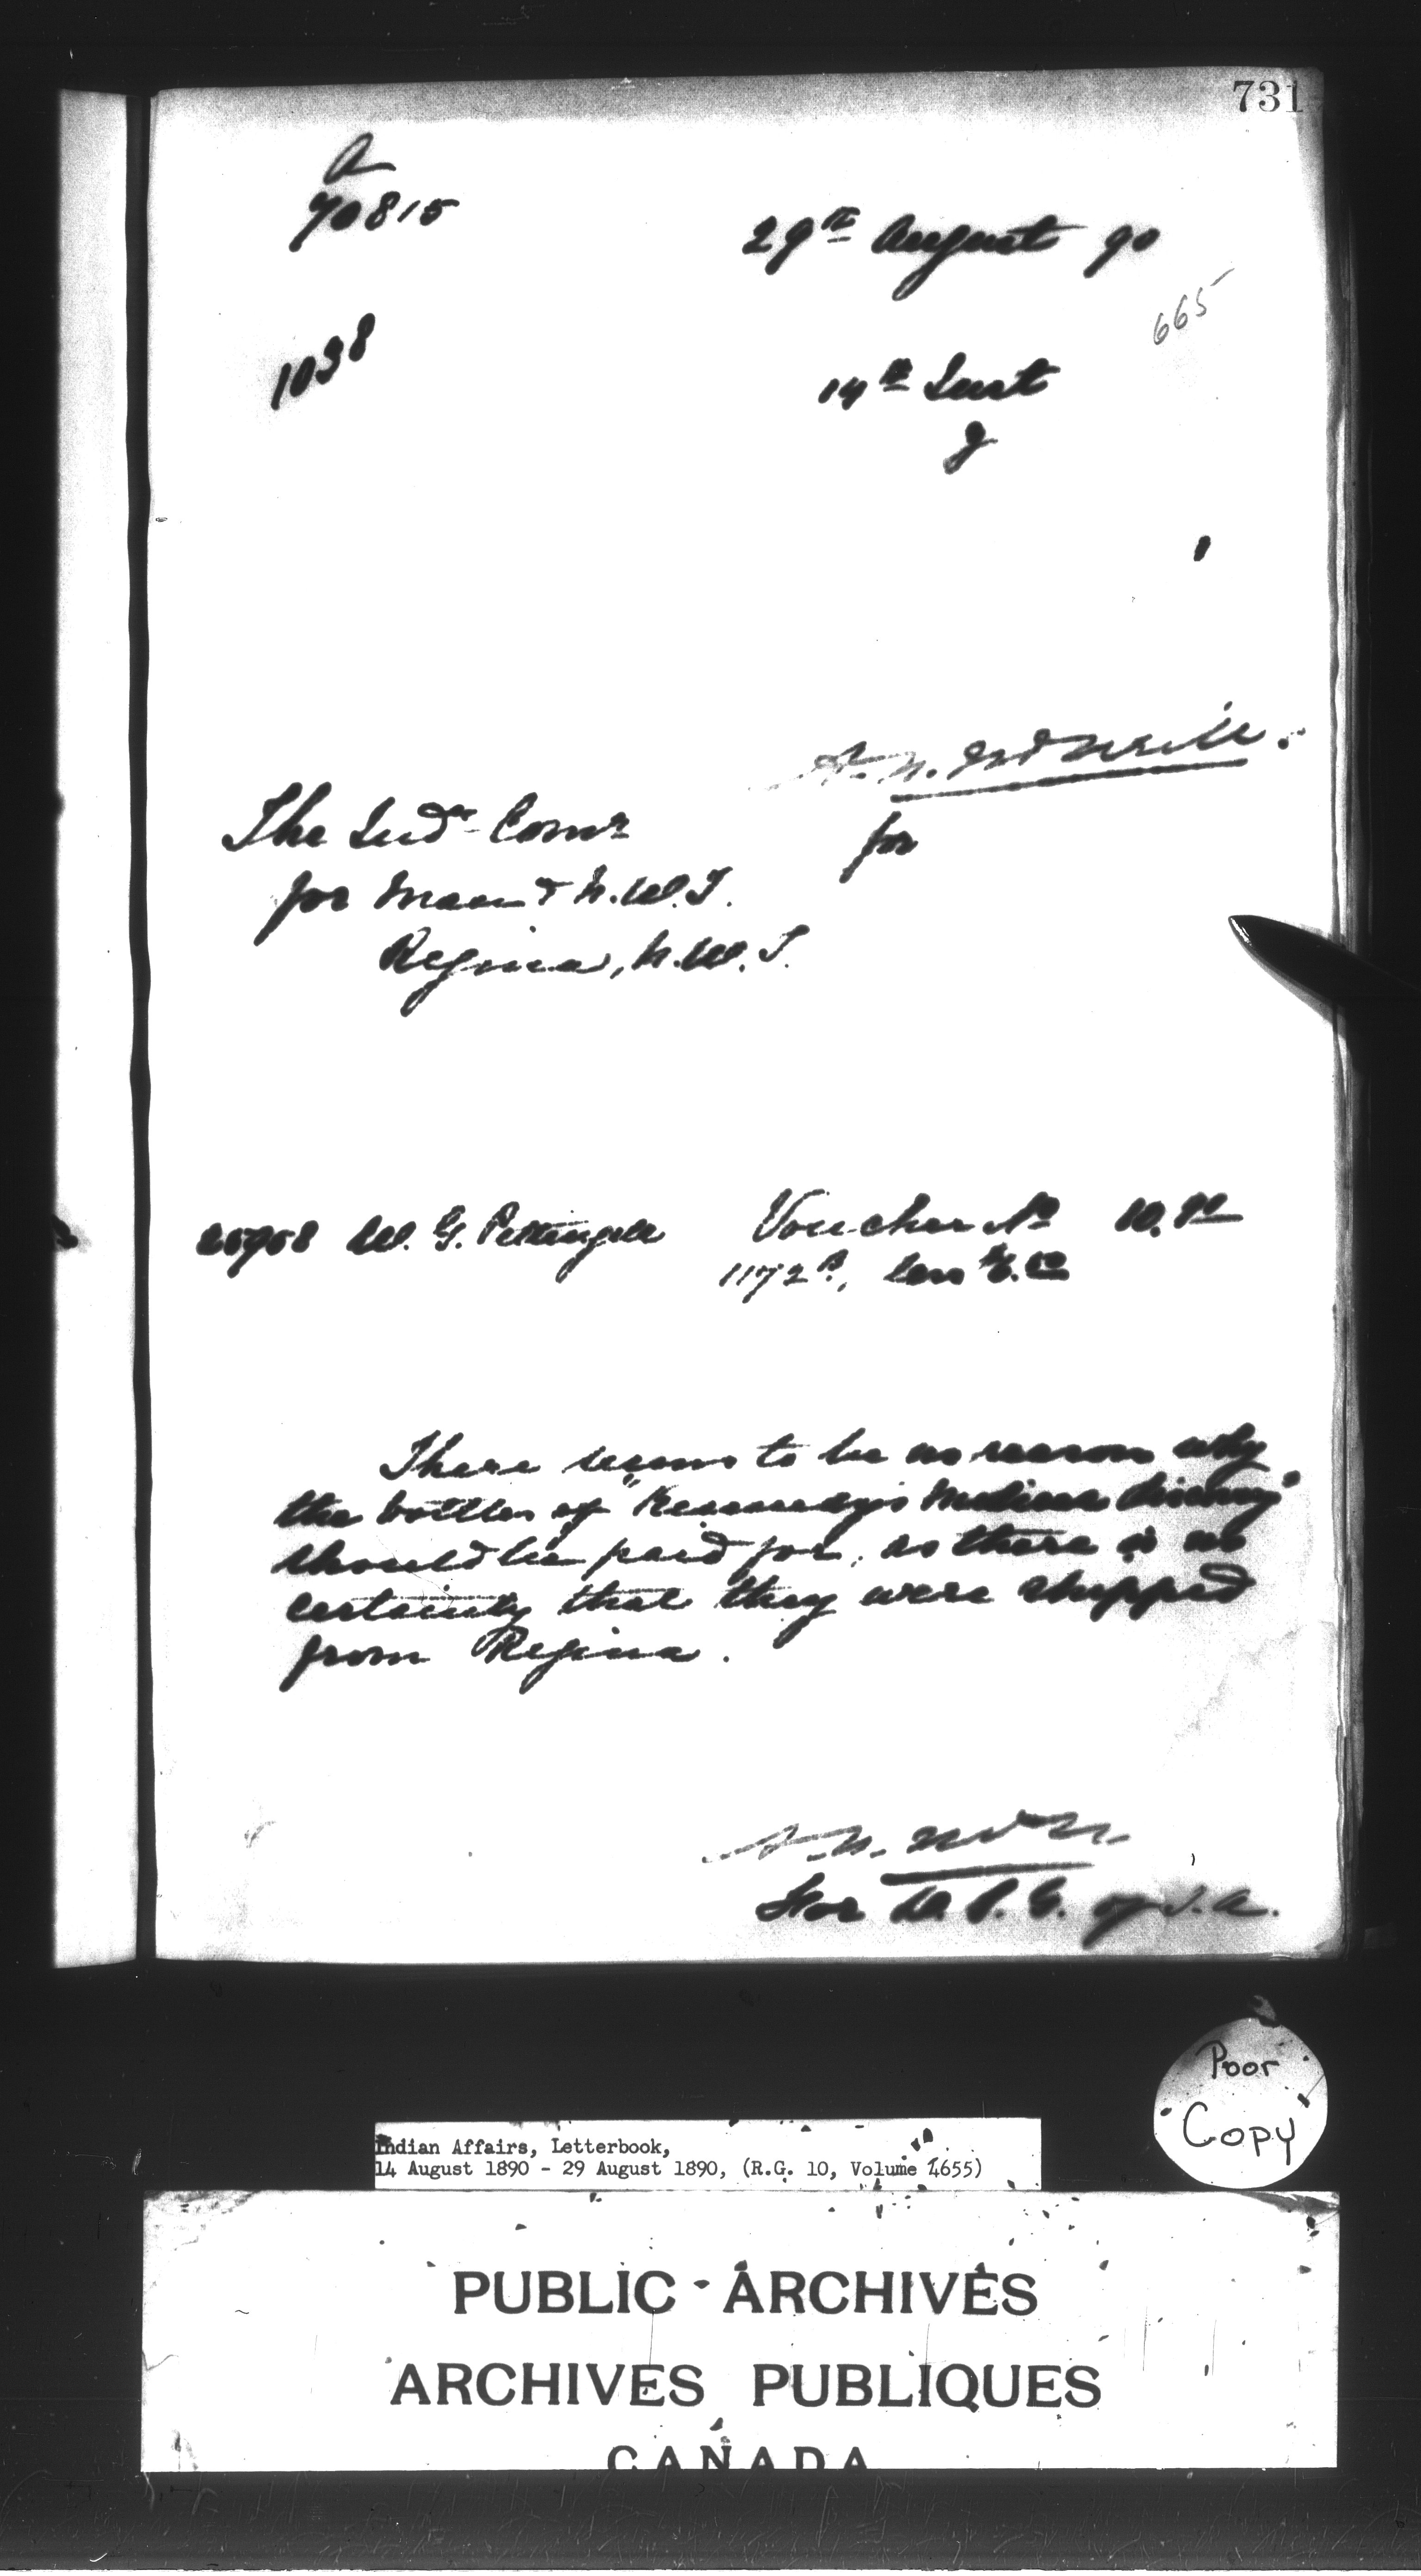 731
A
70815
29th August 90
665
1038
14th Inst
J
A. N. McNeill.
The Indn Comr
for
for Man & N.W.T.
Regina, N.W.T.
W. G. Pettingell Voucher No
1172 B, less
There seems to be no reason why
the bottles of "Kennedy's Medical Discovy"
should be paid for, as there is no
certainty that they were shipped
from Regina.
A. N. McN.
For D. S. G. of I. A.
Poor
Copy
Indian Affairs, Letterbook,
14 August 1890 - 29 August 1890, (R.G. 10, Volume 4655)
PUBLIC - ARCHIVES
ARCHIVES PUBLIQUES
CANADA